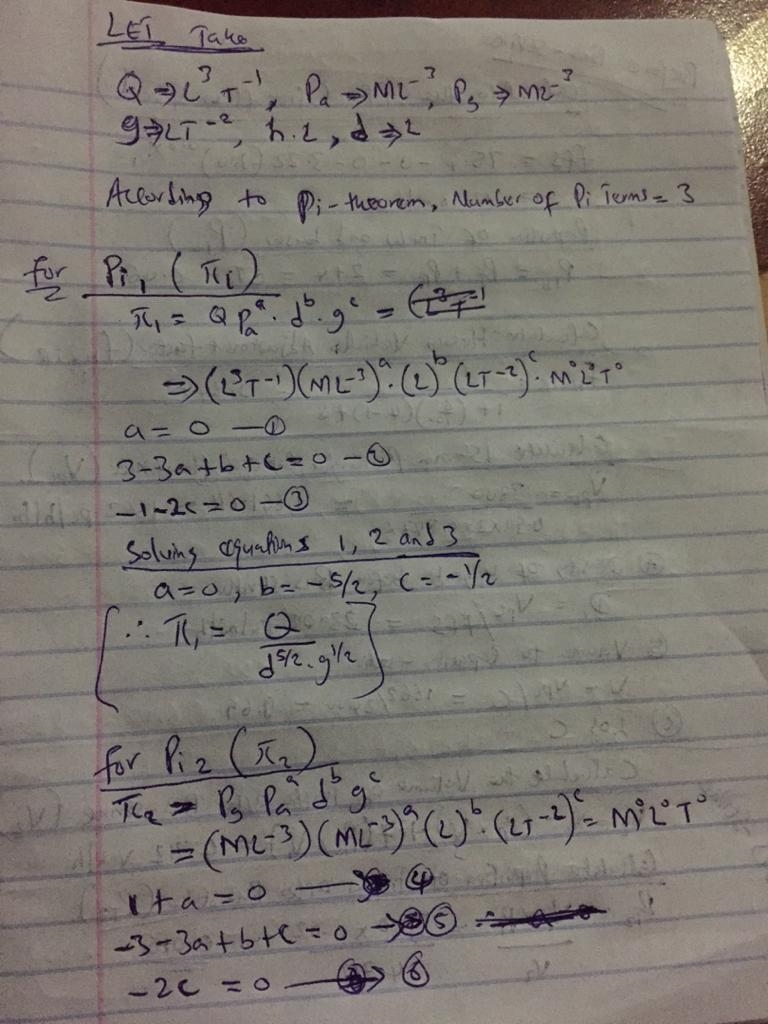 LET Take
Q ⇒ L³T⁻¹, Pa ⇒ ML⁻³, Pg ⇒ ML⁻³
g ⇒ LT⁻², h.L, d ⇒ L
According to Pi-theorem, Number of Pi Terms = 3
for Pi₁ (π₁)
π₁ = Q Paᵃ · dᵇ · gᶜ =
⇒ (L³T⁻¹)(ML⁻³)ᵃ · (L)ᵇ (LT⁻²)ᶜ · M⁰L⁰T⁰
a = 0 — ①
3 - 3a + b + c = 0 — ②
-1 - 2c = 0 — ③
Solving equations 1, 2 and 3
a = 0, b = -5/2, c = -1/2
∴ π₁ = Q / d^5/2 · g^1/2
for Pi₂ (π₂)
π₂ = Pg Paᵃ dᵇ gᶜ
= (ML⁻³)(ML⁻³)ᵃ (L)ᵇ · (LT⁻²)ᶜ = M⁰L⁰T⁰
1 + a = 0 → ④
-3 - 3a + b + c = 0 → ⑤
-2c = 0 → ⑥